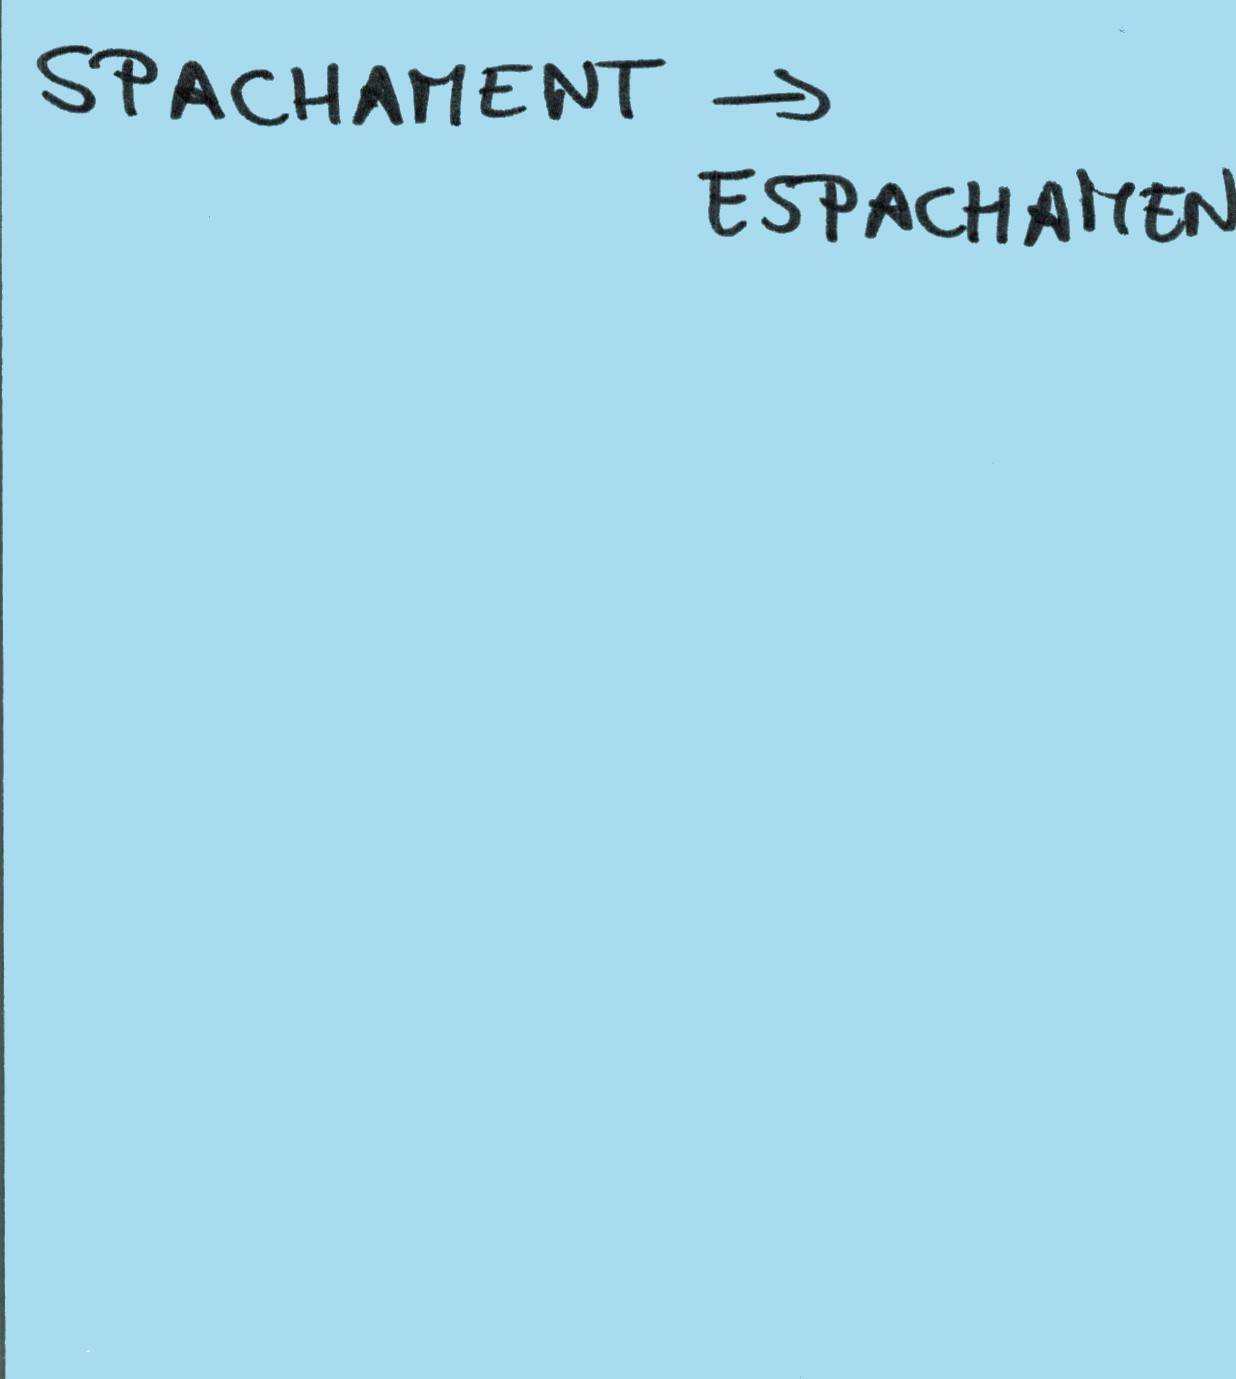 SPACHAMENT →
ESPACHAMEN